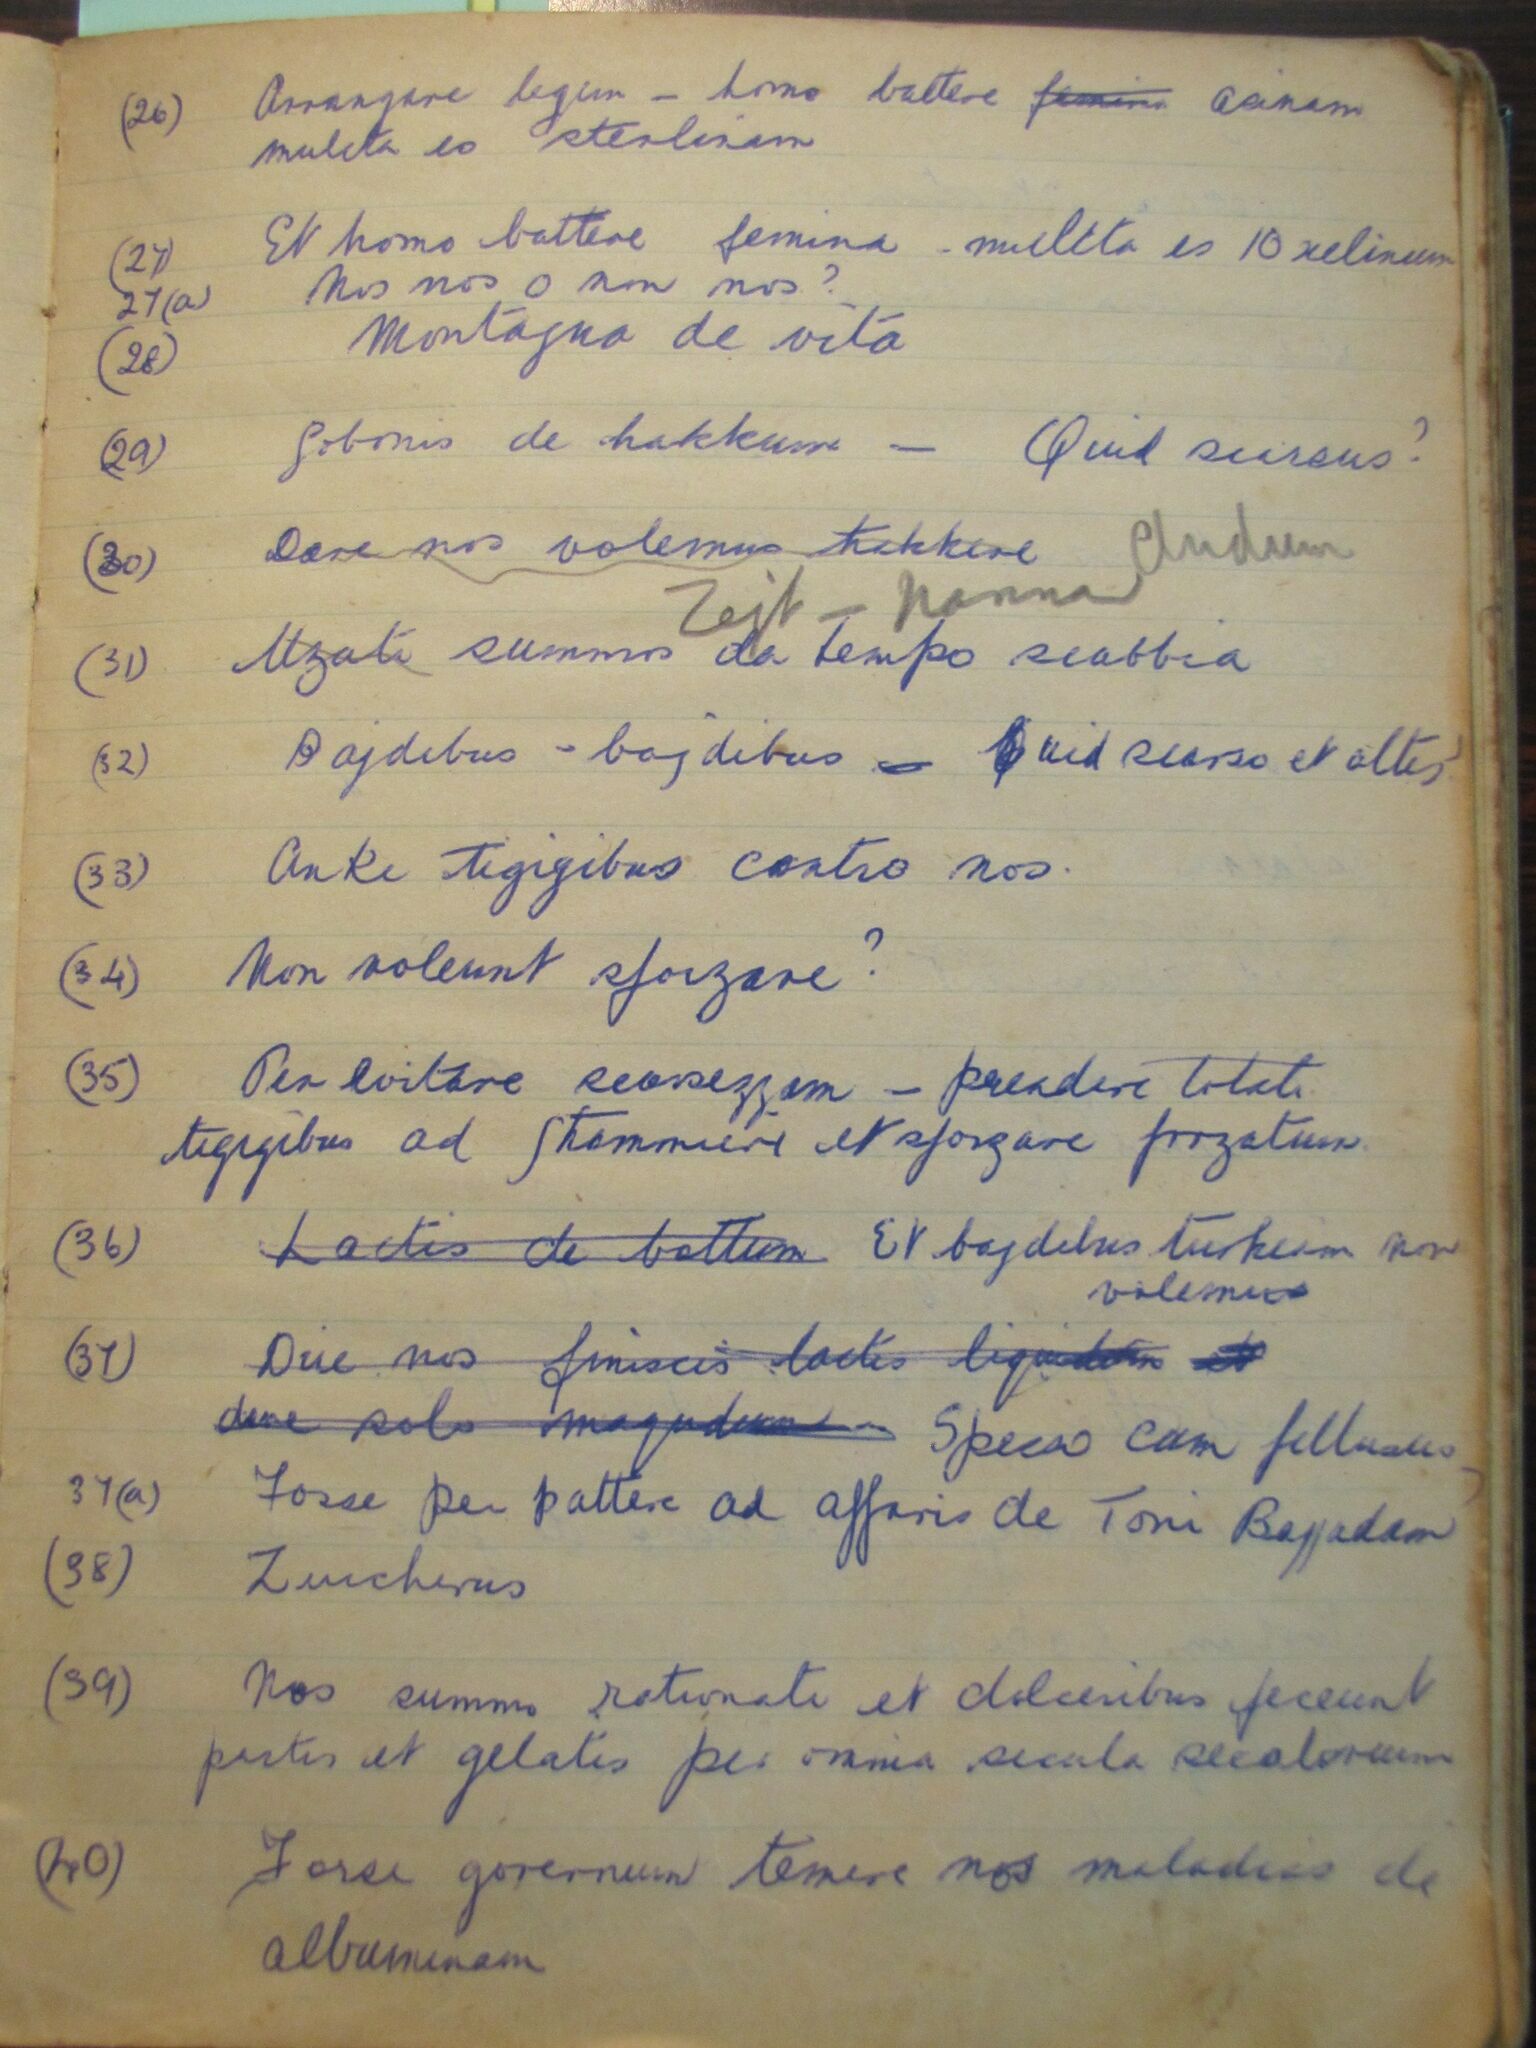 (26) Arrangare legem - homo battere femina asinam
multa es sterlinam
(27) Et homo battere femina - multa es 10 xelinum
27(a) Nos nos o non nos?
(28) Montagna de vita
(29) Gobonis de hakkum - Quid scarsus?
(30) Dare nos volemus hakkere
Zejt - Nanna
(31) Uzati summos da tempo scabbia
(32) Bajdibus - bajdibus - Quid scarso et altis
(33) Anke tigigibus contro nos.
(34) Non voleunt sforzare?
(35) Per evitare scarsezzam - prendere totati
tigigibus ad Shammieri et sforzare forzatum
(36) Lactis de bottum Et bajdibus turkiam non
volemus
(37) Dire nos finiscis lactis liquidum et
dare solo Specso cum fellusus
37(a) Forse per pattere ad affaris de Toni Bajjadam
(38) Zuccherus
(39) Nos summo rationati et dolceribus feceunt
pastis et gelatis per omnia secula secalorum
(40) Forse governum temere nos maladias de
albuminam